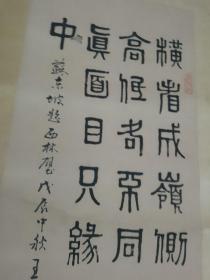 橫看成嶺側
高低各不同
眞面目只緣
中
蘇東坡題西林壁戊辰中秋王